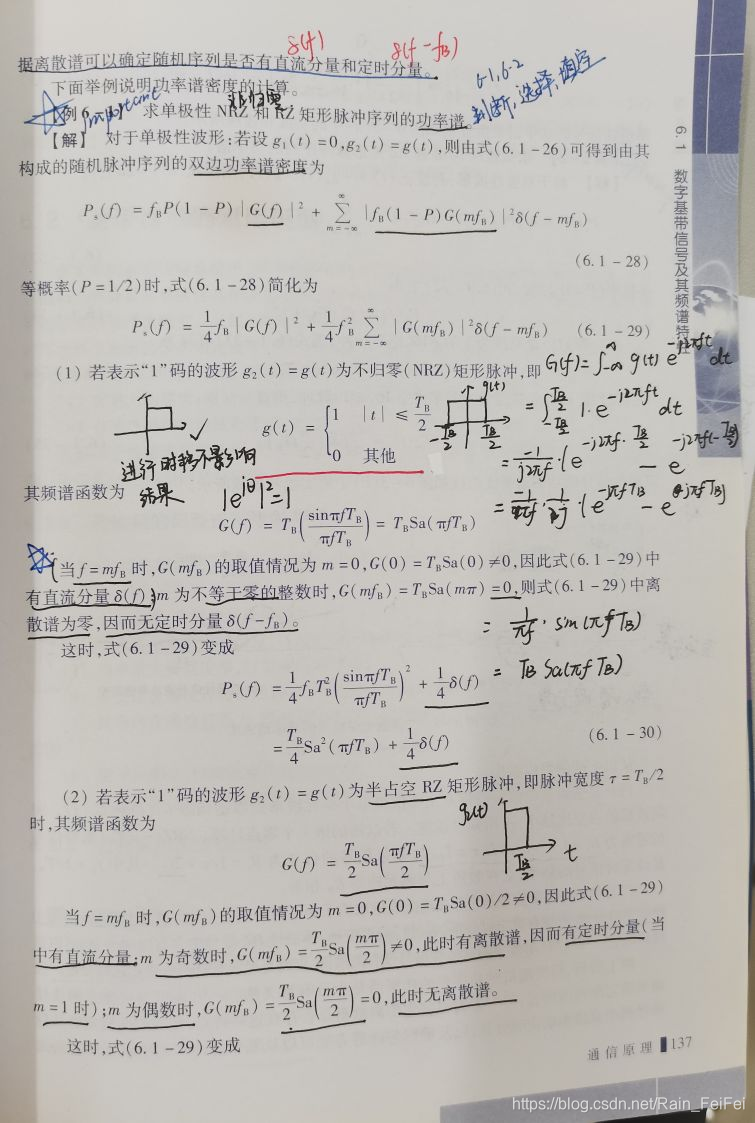 δ(f) δ(f-f_B)
据离散谱可以确定随机序列是否有直流分量和定时分量。
下面举例说明功率谱密度的计算。
6-1,6-2
判断,选择,填空
important
非归零
例6-1 求单极性 NRZ 和 RZ 矩形脉冲序列的功率谱。
【解】 对于单极性波形:若设 g₁(t)=0,g₂(t)=g(t),则由式(6.1-26)可得到由其
构成的随机脉冲序列的双边功率谱密度为
P_s(f) = f_B P(1-P)|G(f)|² + ∑_{m=-∞}^{∞} |f_B(1-P)G(mf_B)|²δ(f-mf_B)
(6.1-28)
等概率(P=1/2)时,式(6.1-28)简化为
P_s(f) = 1/4 f_B|G(f)|² + 1/4 f_B² ∑_{m=-∞}^{∞} |G(mf_B)|²δ(f-mf_B) (6.1-29)
(1) 若表示“1”码的波形 g₂(t)=g(t)为不归零(NRZ)矩形脉冲,即
G(f)=∫_{-∞}^{∞} g(t) e^{-j2πft} dt
g(t) = {1 |t| ≤ T_B/2
0 其他
g(t)
-T_B/2 T_B/2
= ∫_{-T_B/2}^{T_B/2} 1·e^{-j2πft} dt
= -1/j2πf ·(e^{-j2πf·T_B/2} - e^{-j2πf(-T_B/2)}
= -1/πf · 1/2j ·(e^{-jπfT_B} - e^{jπfT_B})
进行时移不影响
结果
|e^{jθ}|²=1
其频谱函数为
G(f) = T_B(sinπfT_B/πfT_B) = T_B Sa(πfT_B)
当 f=mf_B 时,G(mf_B)的取值情况为 m=0,G(0)=T_B Sa(0)≠0,因此式(6.1-29)中
有直流分量 δ(f);m 为不等于零的整数时,G(mf_B)=T_B Sa(mπ)=0,则式(6.1-29)中离
散谱为零,因而无定时分量 δ(f-f_B)。
= 1/πf · sin(πfT_B)
这时,式(6.1-29)变成
= T_B Sa(πfT_B)
P_s(f) = 1/4 f_B T_B²(sinπfT_B/πfT_B)² + 1/4 δ(f)
= T_B/4 Sa²(πfT_B) + 1/4 δ(f) (6.1-30)
(2) 若表示“1”码的波形 g₂(t)=g(t)为半占空 RZ 矩形脉冲,即脉冲宽度 τ=T_B/2
时,其频谱函数为
g₂(t)
T_B/2 t
G(f) = T_B/2 Sa(πfT_B/2)
当 f=mf_B 时,G(mf_B)的取值情况为 m=0,G(0)=T_B Sa(0)/2≠0,因此式(6.1-29)
中有直流分量;m 为奇数时,G(mf_B)=T_B/2 Sa(mπ/2)≠0,此时有离散谱,因而有定时分量(当
m=1 时);m 为偶数时,G(mf_B)=T_B/2 Sa(mπ/2)=0,此时无离散谱。
这时,式(6.1-29)变成
通信原理 137
6.1 数字基带信号及其频谱特性
https://blog.csdn.net/Rain_FeiFei